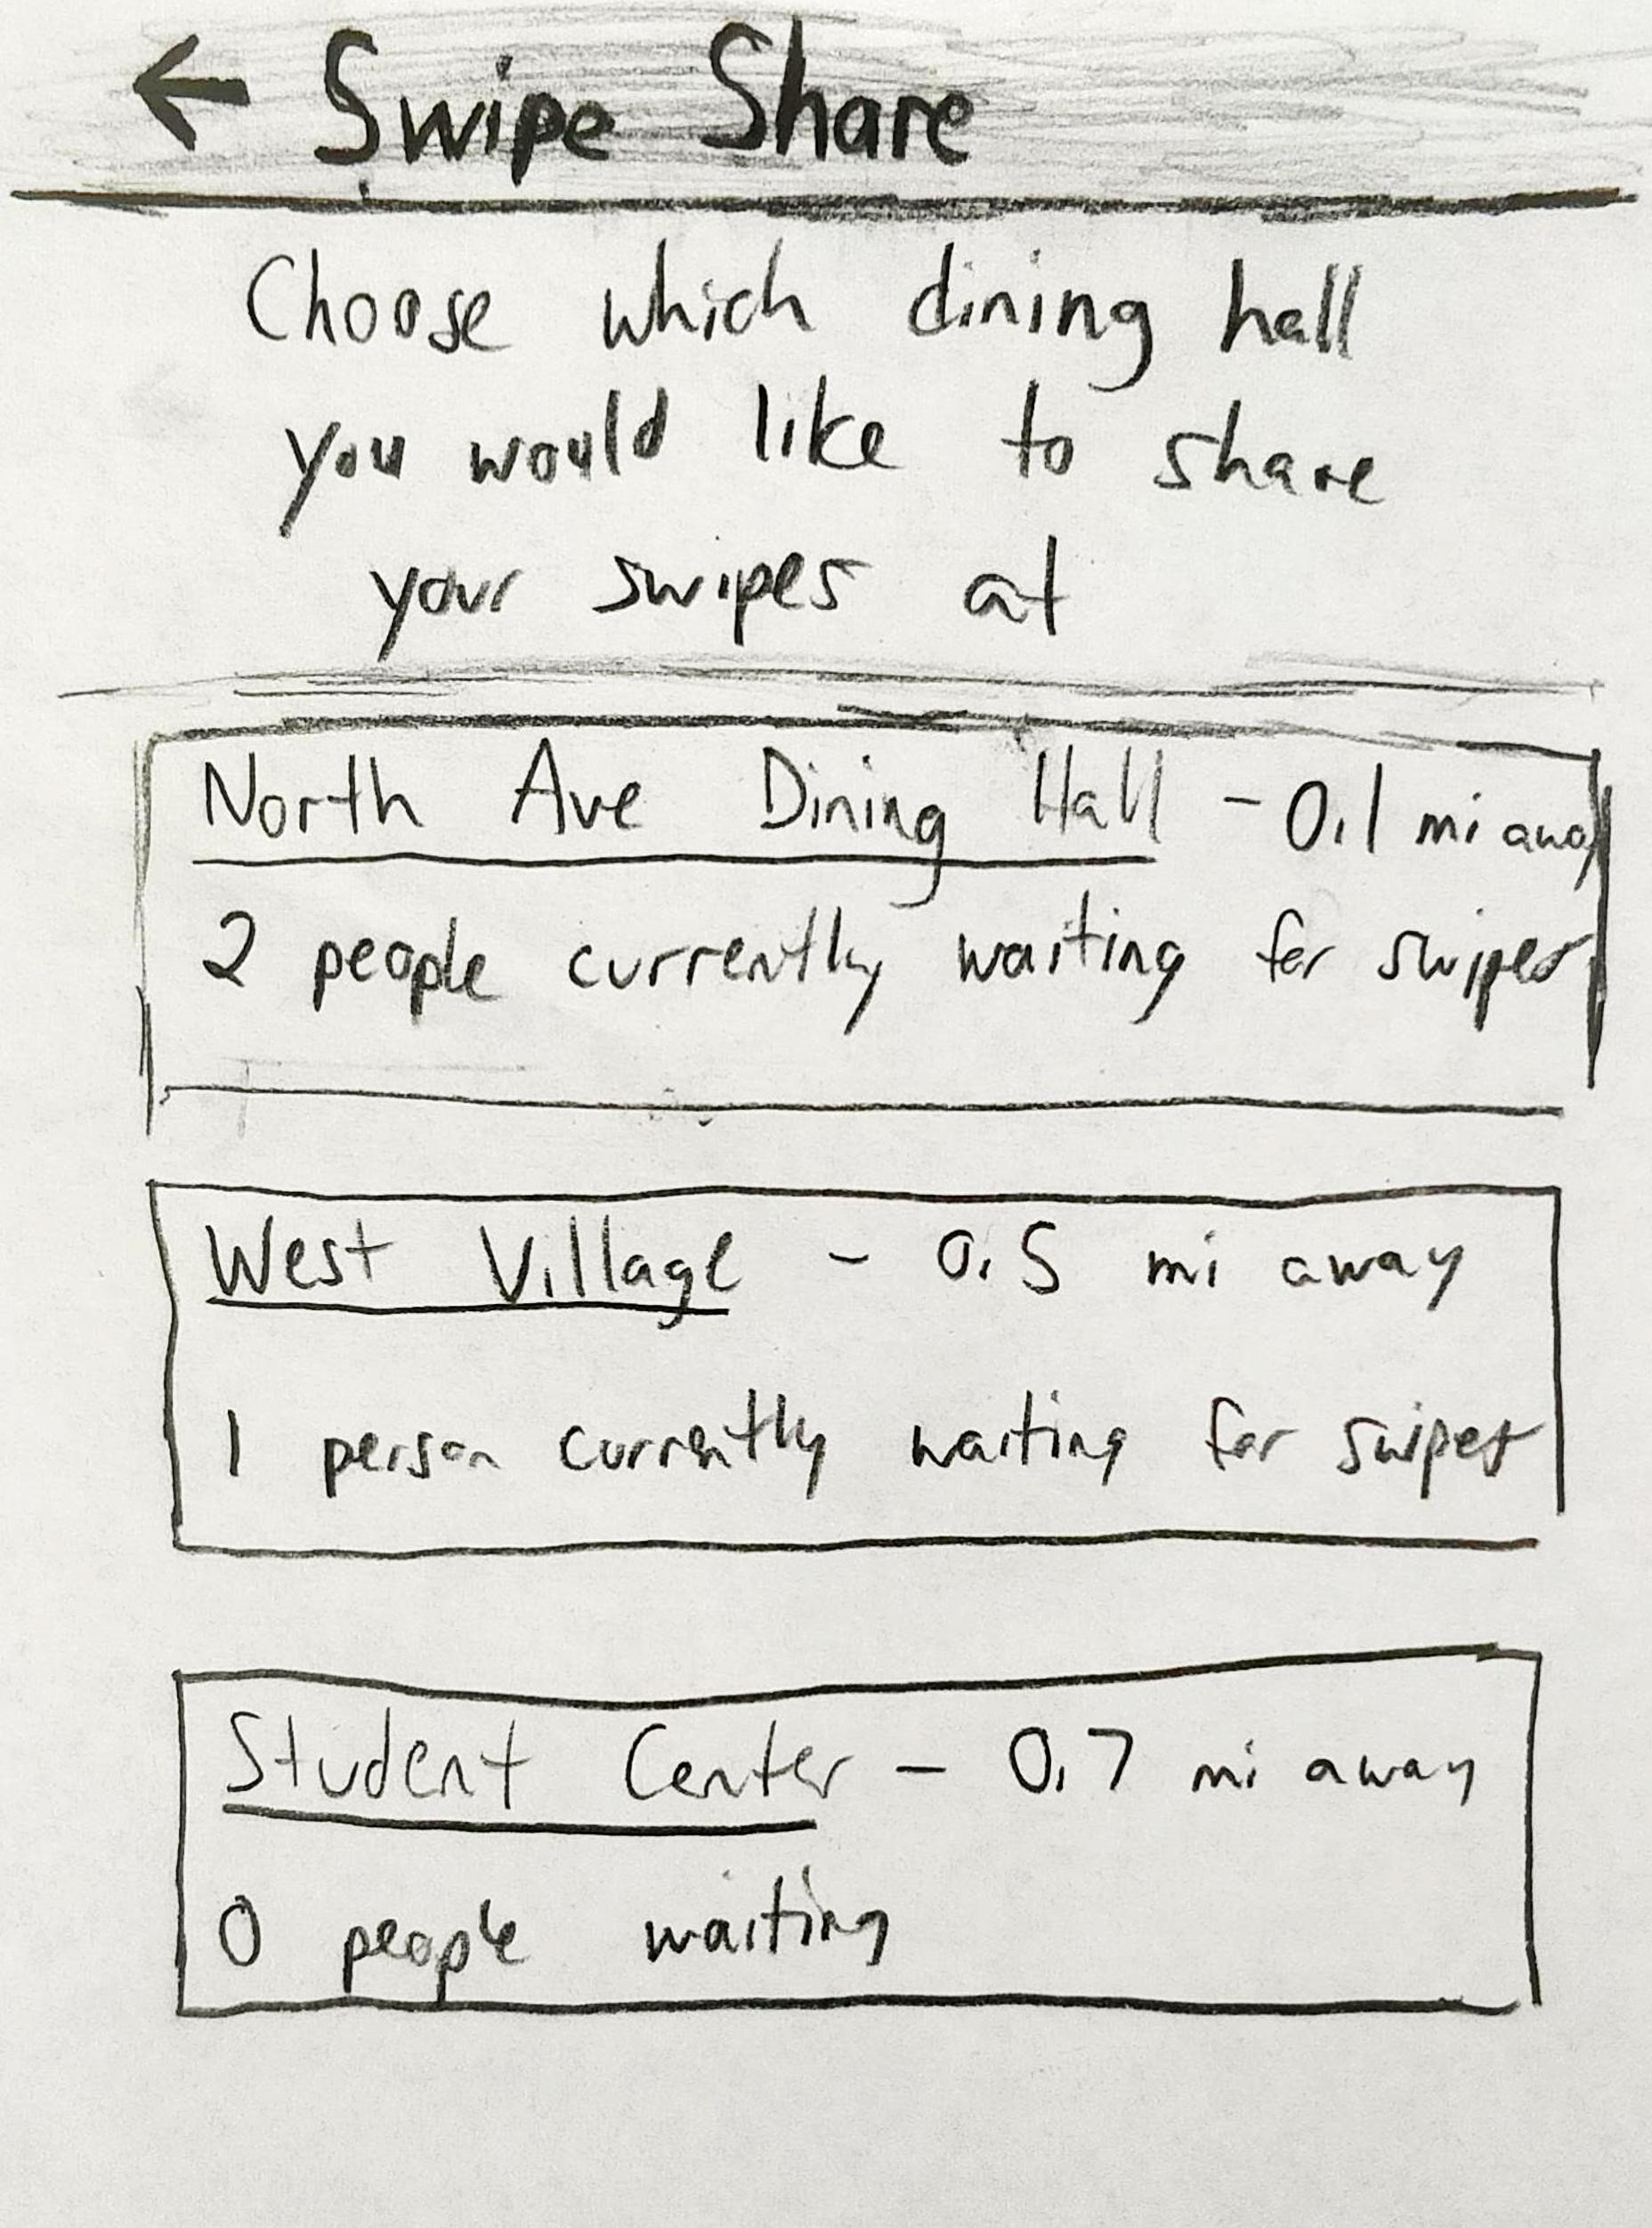 ← Swipe Share
Choose which dining hall
you would like to share
your swipes at
North Ave Dining Hall - 0.1 mi away
2 people currently waiting for swipes
West Village - 0.5 mi away
1 person currently waiting for swipes
Student Center - 0.7 mi away
0 people waiting